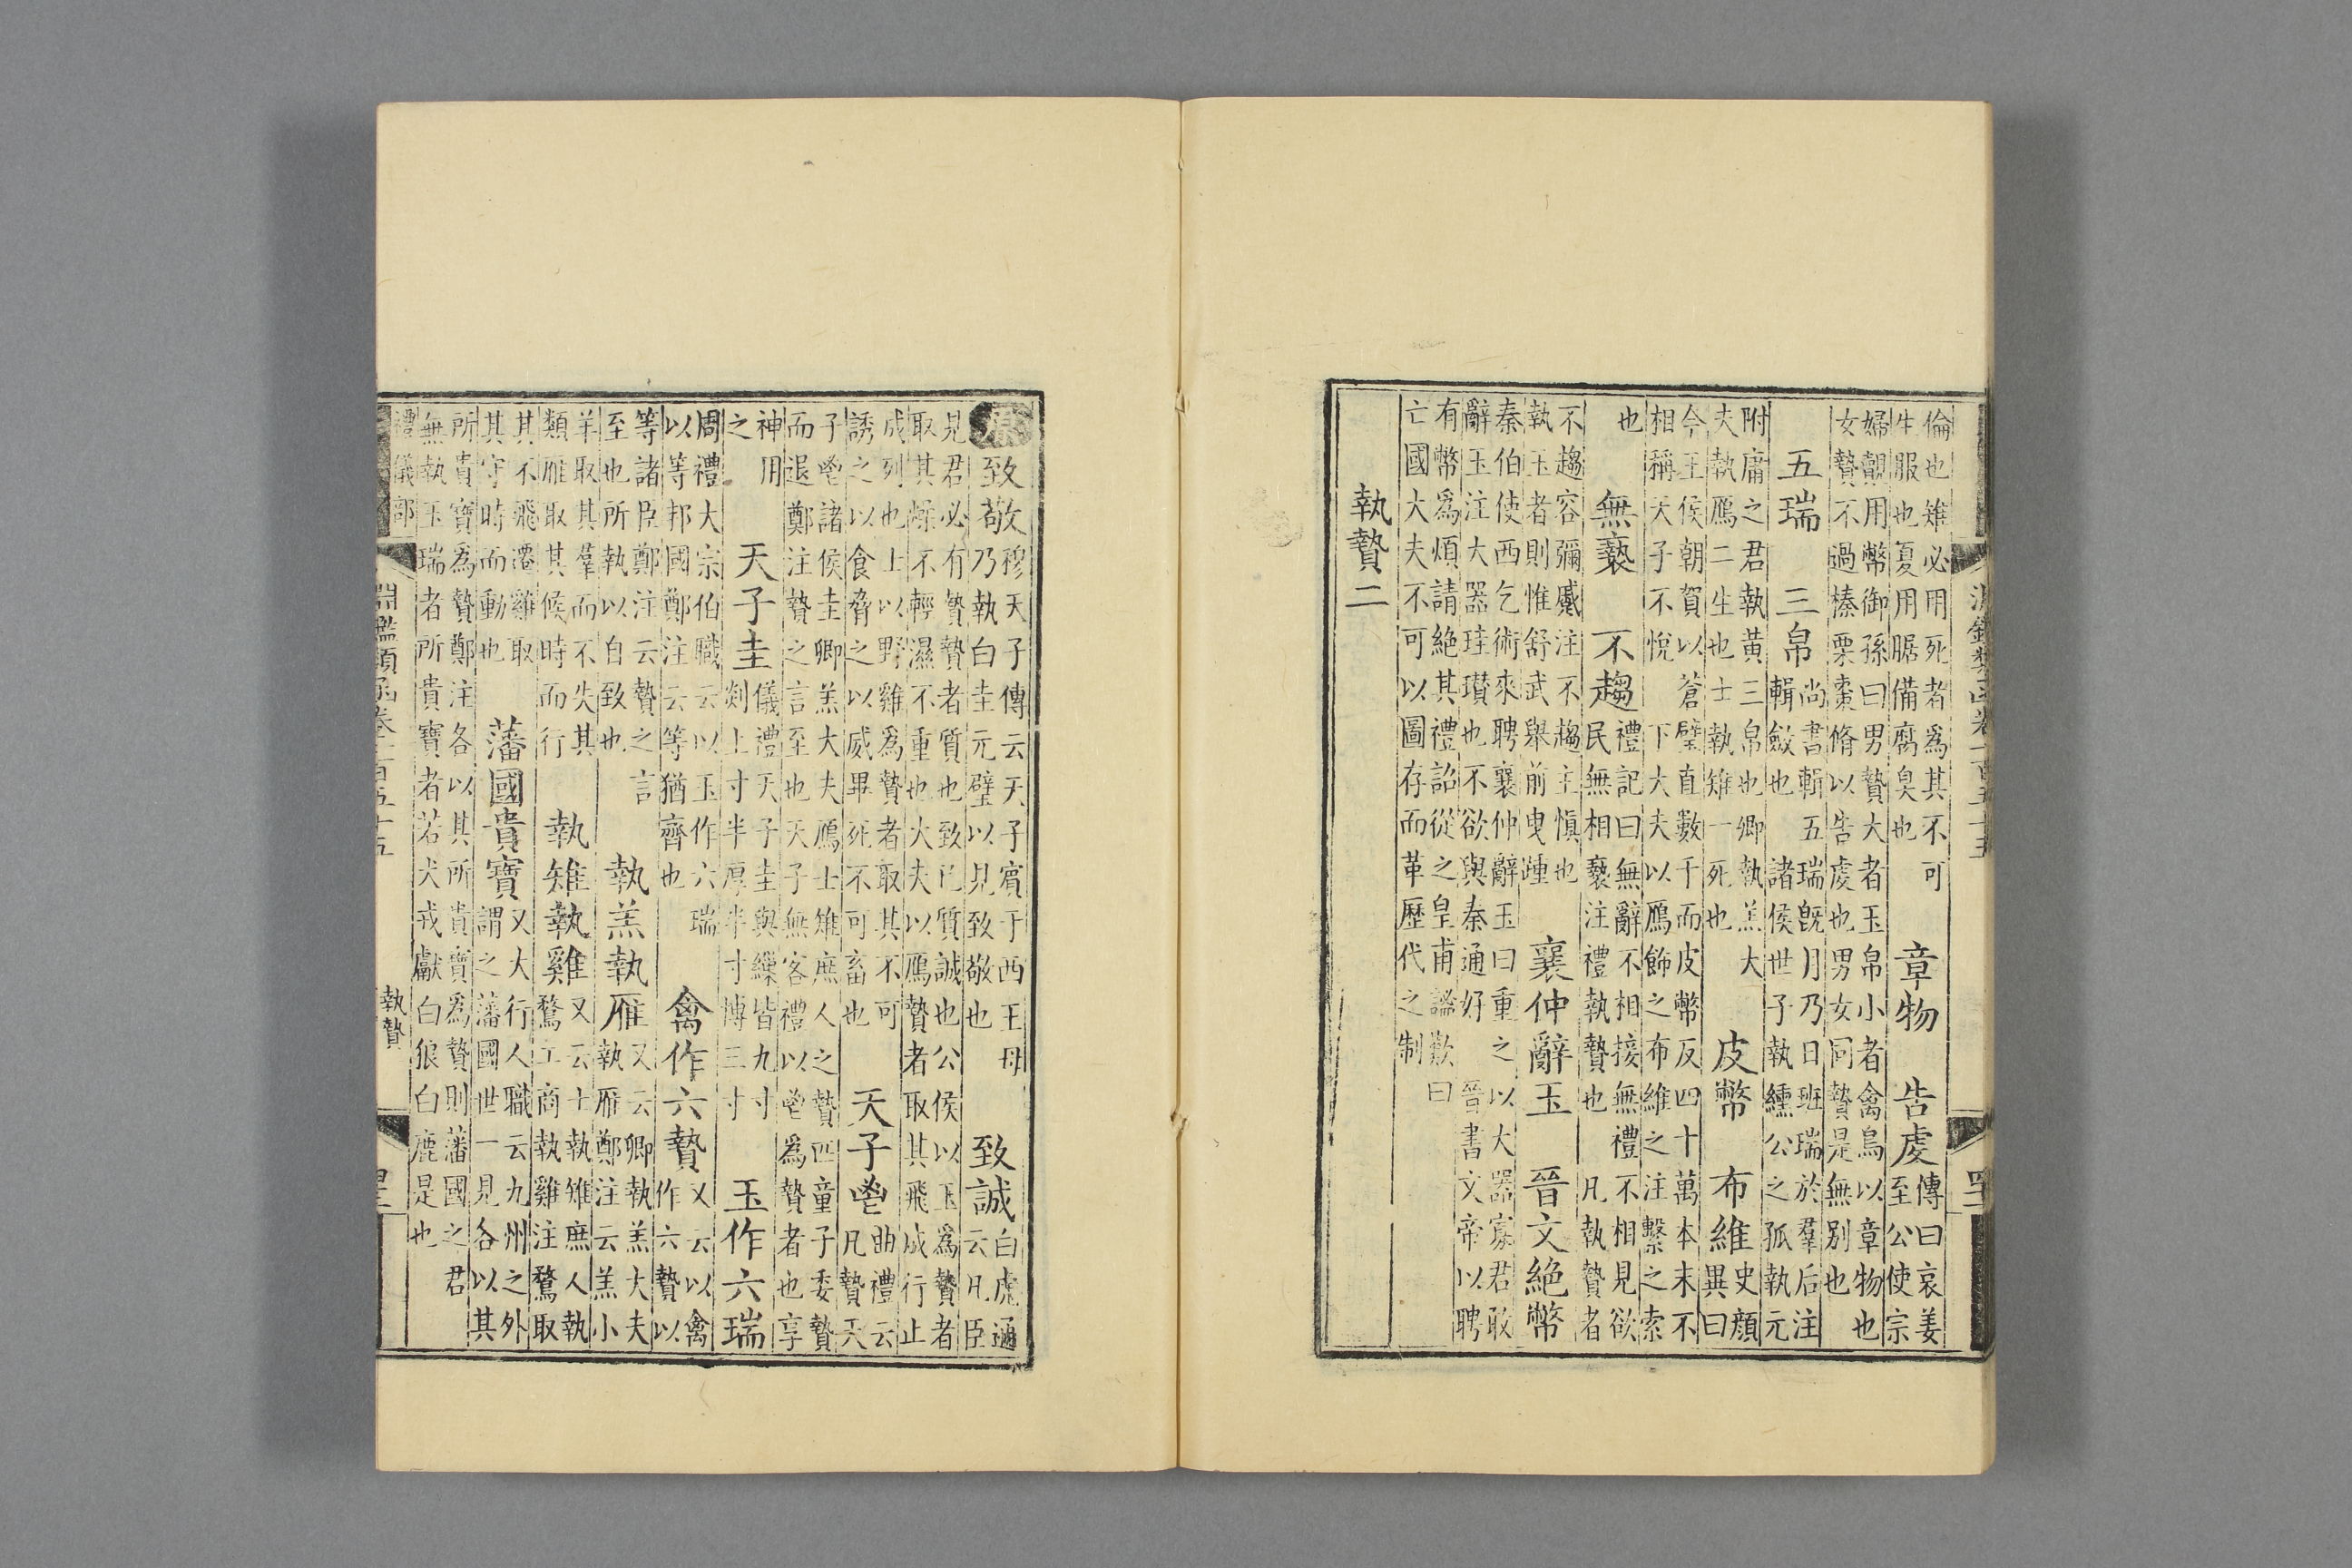 倫也雉必用死者爲其不可
生服也夏用腒備腐臭也
章物　告虔
傳曰哀姜
至公使宗
婦覿用幣御孫曰男贄大者玉帛小者禽鳥以章物也
女贄不過榛栗棗脩以告虔也男女同贄是無别也
五瑞　三帛
尚書輯五瑞既月乃日班瑞於羣后注
輯斂也　諸侯世子執纁公之孤執元
附庸之君執黃三帛也卿執羔大
夫執鴈二生也士執雉一死也
皮幣　布維
史顏
異曰
今王侯朝賀以蒼璧直數千而皮幣反四十萬本末不
相稱天子不悅　下大夫以鴈飾之布維之注繫之索
也
無䙝　不趨
禮記曰無辭不相接無禮不相見欲
民無相䙝注禮執贄也　凡執贄者
不趨容彌蹙注不趨主愼也
執玉者則惟舒武舉前曳踵
襄仲辭玉　晉文絶幣
秦伯使西乞術來聘襄仲辭玉曰重之以大器寡君敢
辭玉注大器珪瓚也不欲與秦通好　晉書文帝以聘
有幣爲煩請絶其禮詔從之皇甫謐歎曰
亡國大夫不可以圖存而革歷代之制
執贄二
致敬
穆天子傳云天子賓于西王母
乃執白圭元璧以見致敬也
致誠
白虎通
云凡臣
見君必有贄贄者質也致已質誠也公侯以玉爲贄者
取其燥不輕濕不重也大夫以鴈贄者取其飛成行止
成列也　上以野雞爲贄者取其不可
誘之以食脅之以威畢死不可畜也
天子鬯
曲禮云
凡贄天
子鬯諸侯圭卿羔大夫鴈士雉庶人之贄匹童子委贄
而退鄭注贄之言至也天子無客禮以鬯爲贄者也享
神用
之
天子圭
儀禮天子圭與繅皆九寸
剡上寸半厚半寸博三寸
玉作六瑞
周禮大宗伯職云以玉作六瑞
以等邦國鄭注云等猶齊也
禽作六贄
又云以禽
作六贄以
等諸臣鄭注云贄之言
至也所執以自致也
執羔執雁
又云卿執羔大夫
執雁鄭注云羔小
羊取其羣而不失其
類雁取其候時而行
執雉執雞
又云士執雉庶人執
鶩工商執雞注鶩取
其不飛遷雞取
其守時而動也
藩國貴寶
又大行人職云九州之外
謂之藩國世一見各以其
所貴寶爲贄鄭注各以其所貴寶爲贄則藩國之君
無執玉瑞者所貴寶者若犬戎獻白狼白鹿是也
禮儀部
淵鑑類函卷二百五十五
執贄